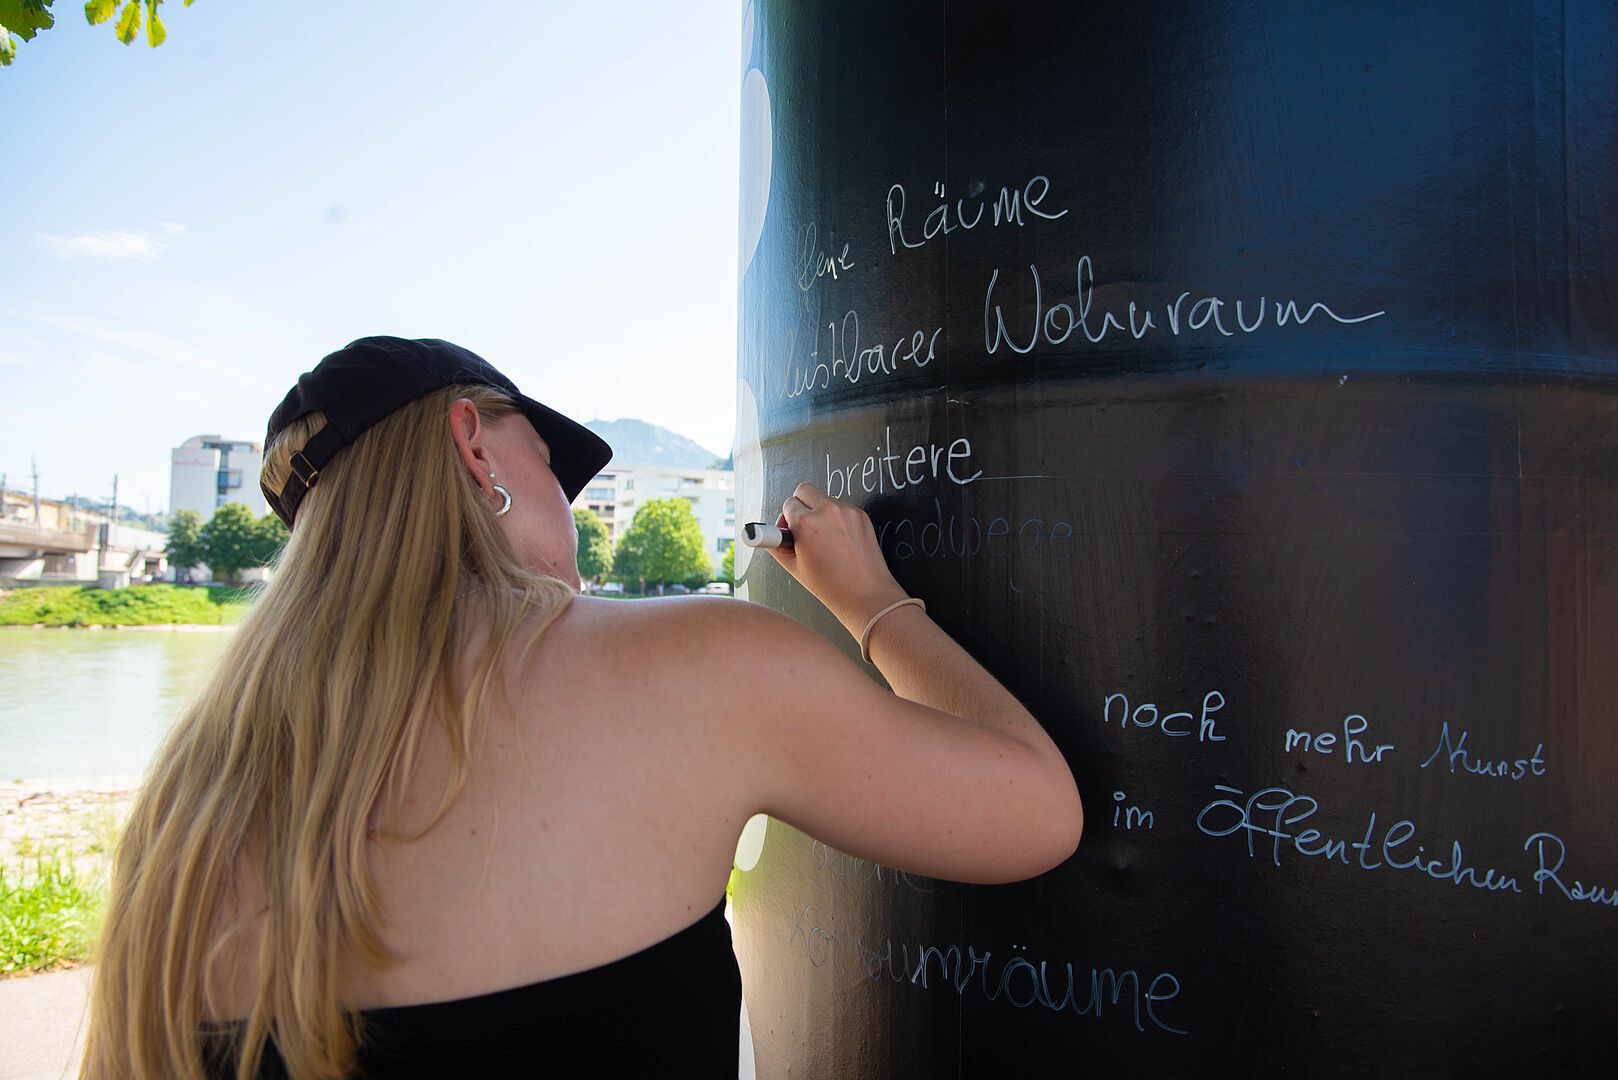 Räume
leistbarer Wohnraum
breitere
radwege
noch mehr Kunst
im öffentlichen Raum
Konsumräume